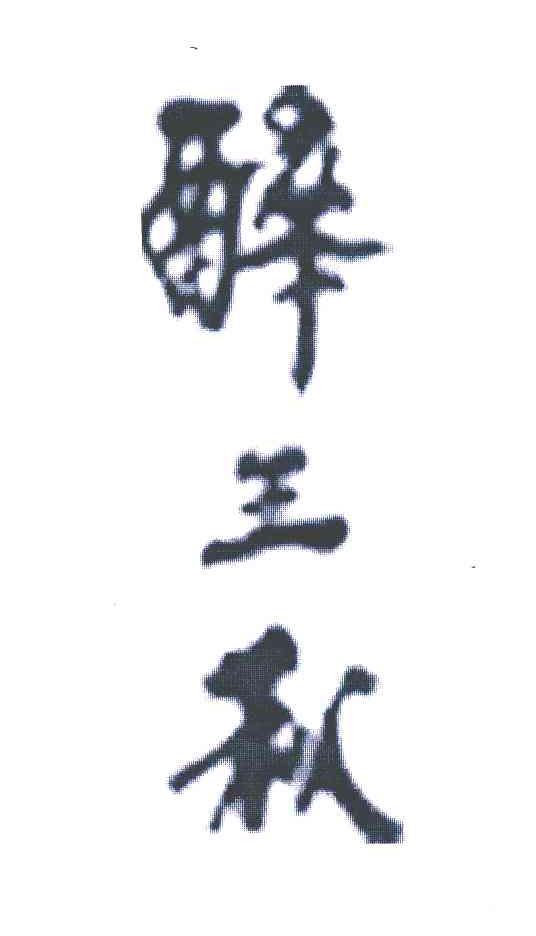 醉三秋